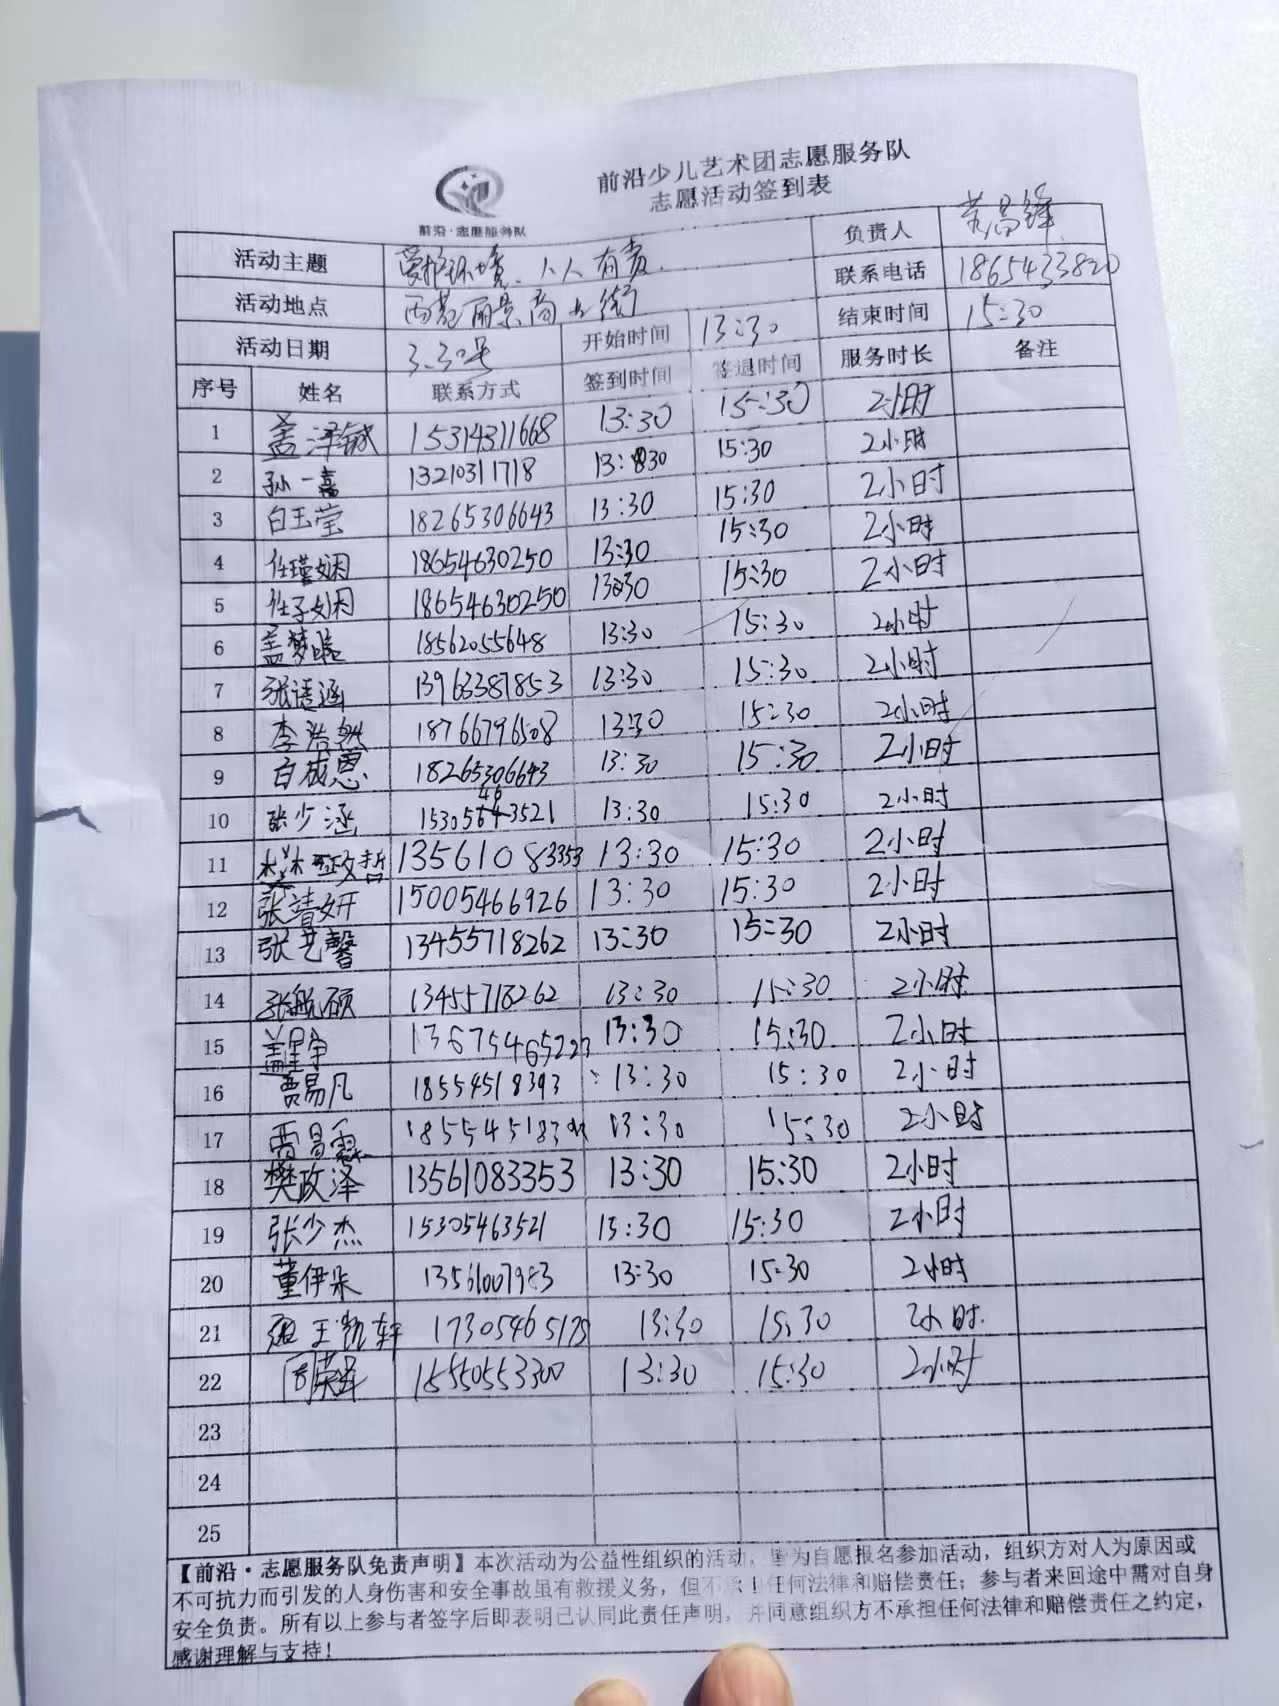 前沿少儿艺术团志愿服务队
志愿活动签到表
前沿·志愿服务队
活动主题 爱护环境、人人有责. 负责人 昌锋
活动地点 西苑丽景商业街 联系电话 18654733820
活动日期 3.30号 开始时间 13:30 结束时间 15:30
序号 姓名 联系方式 签到时间 签退时间 服务时长 备注
1 盖泽铖 15314311668 13:30 15:30 2小时
2 孙一嘉 13210311718 13:30 15:30 2小时
3 白玉莹 18265306643 13:30 15:30 2小时
4 任瑾姻 18654630250 13:30 15:30 2小时
5 任子姻 18654630250 13:30 15:30 2小时
6 盖梦 18562055648 13:30 15:30 2小时
7 张语涵 13963387853 13:30 15:30 2小时
8 李浩然 18766796508 13:30 15:30 2小时
9 白 恩 18265306643 13:30 15:30 2小时
10 张少涵 15305463521 13:30 15:30 2小时
11 樊政哲 13561083353 13:30 15:30 2小时
12 张靖妍 15005466926 13:30 15:30 2小时
13 张艺馨 13455718262 13:30 15:30 2小时
14 张航硕 13455718262 13:30 15:30 2小时
15 盖 13:30 15:30 2小时
16 贾易凡 18554518393 13:30 15:30 2小时
17 贾易霖 13:30 15:30 2小时
18 樊政泽 13561083353 13:30 15:30 2小时
19 张少杰 15305463521 13:30 15:30 2小时
20 董伊朵 13561007983 13:30 15:30 2小时
21 王凯轩 17305465175 13:30 15:30 2小时.
22 15550553300 13:30 15:30 2小时
23
24
25
【前沿·志愿服务队免责声明】本次活动为公益性组织的活动，皆为自愿报名参加活动，组织方对人为原因或
不可抗力而引发的人身伤害和安全事故虽有救援义务，但不承担任何法律和赔偿责任；参与者来回途中需对自身
安全负责。所有以上参与者签字后即表明已认同此责任声明，并同意组织方不承担任何法律和赔偿责任之约定，
感谢理解与支持！